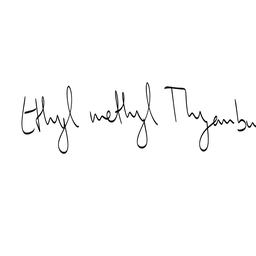 Ethyl methyl Thyambu